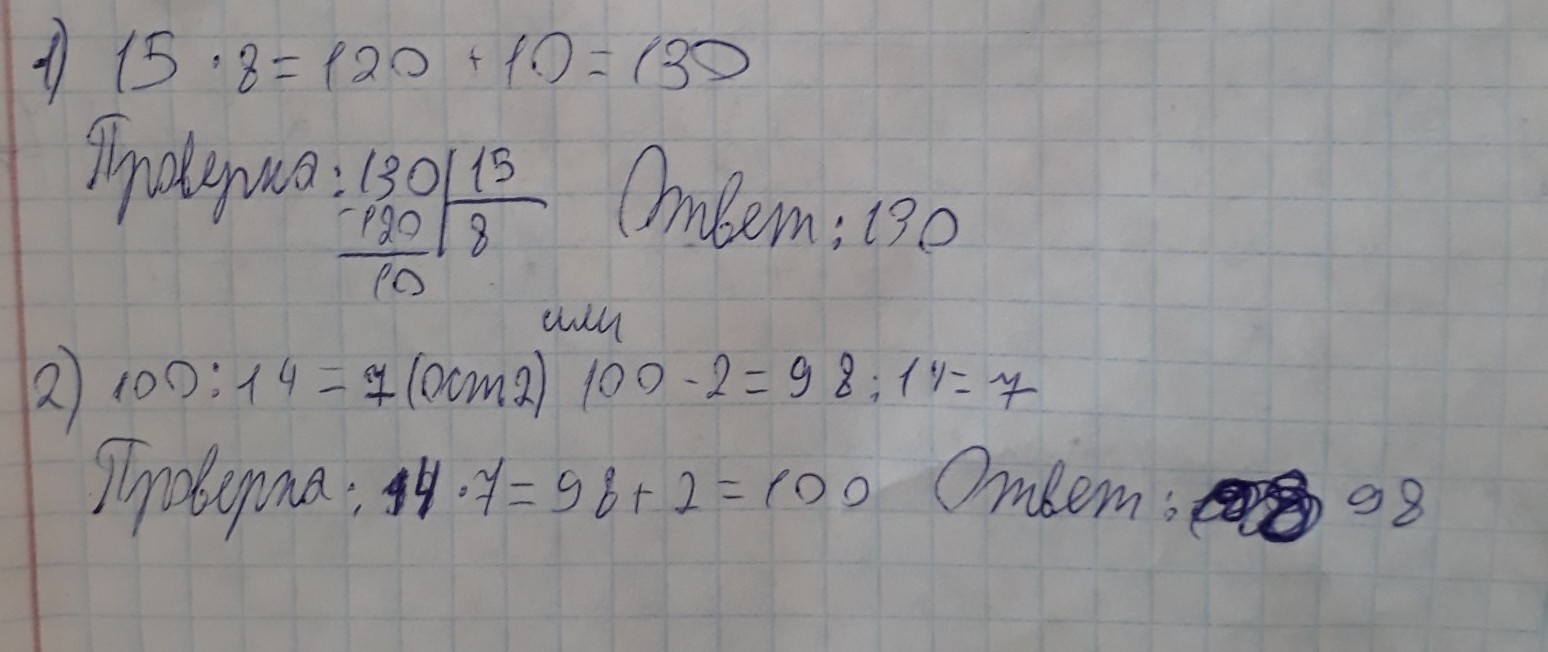 1) 15 · 8 = 120 + 10 = 130
Проверка: 130 | 15 Ответ: 130
-120 | 8
10
или
2) 100 : 14 = 7 (ост 2) 100 - 2 = 98 : 14 = 7
Проверка: 14 · 7 = 98 + 2 = 100 Ответ: 98